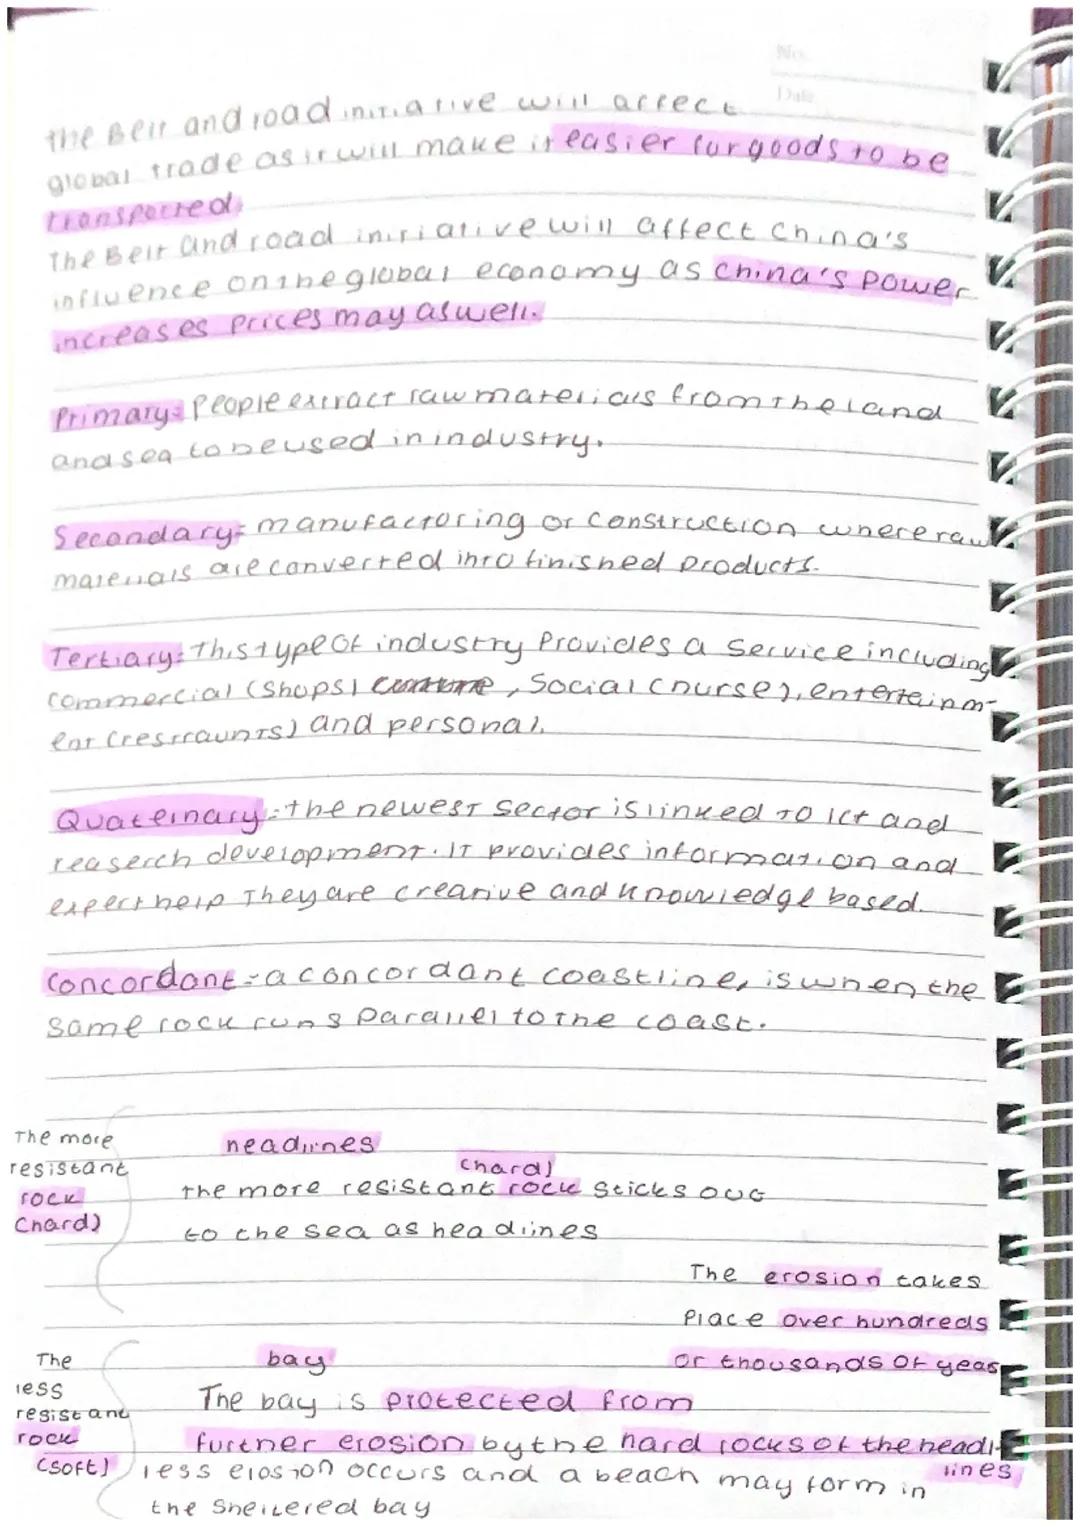 No.
Date
the Belt and road initiative will affect
global trade as it will make it easier for goods to be
transported.
The Belt and road initiative will affect China's
influence on the global economy as China's power
increases prices may aswell.
Primary: People extract raw materials from the land
and sea to be used in industry.
Secondary: manufactoring or construction where raw
materials are converted into finished products.
Tertiary: This type of industry Provides a Service including
commercial (shops), Social (nurse), entertainm-
ent (restraunts) and personal.
Quaternary: the newest sector is linked to ict and
reaserch development. It provides information and
expert help They are creative and knowledge based.
Concordant - a concordant coastline, is when the
Same rock runs Parallel to the coast.
The more
resistant
rock
(hard)
headlines
(hard)
the more resistant rock sticks out
to the sea as headlines
The erosion takes
Place over hundreds
or thousands of yeas
The
less
resistant
rock
(soft)
bay
The bay is protected from
further erosion by the hard rocks of the headl-
lines
less erosion occurs and a beach may form in
the Sheltered bay